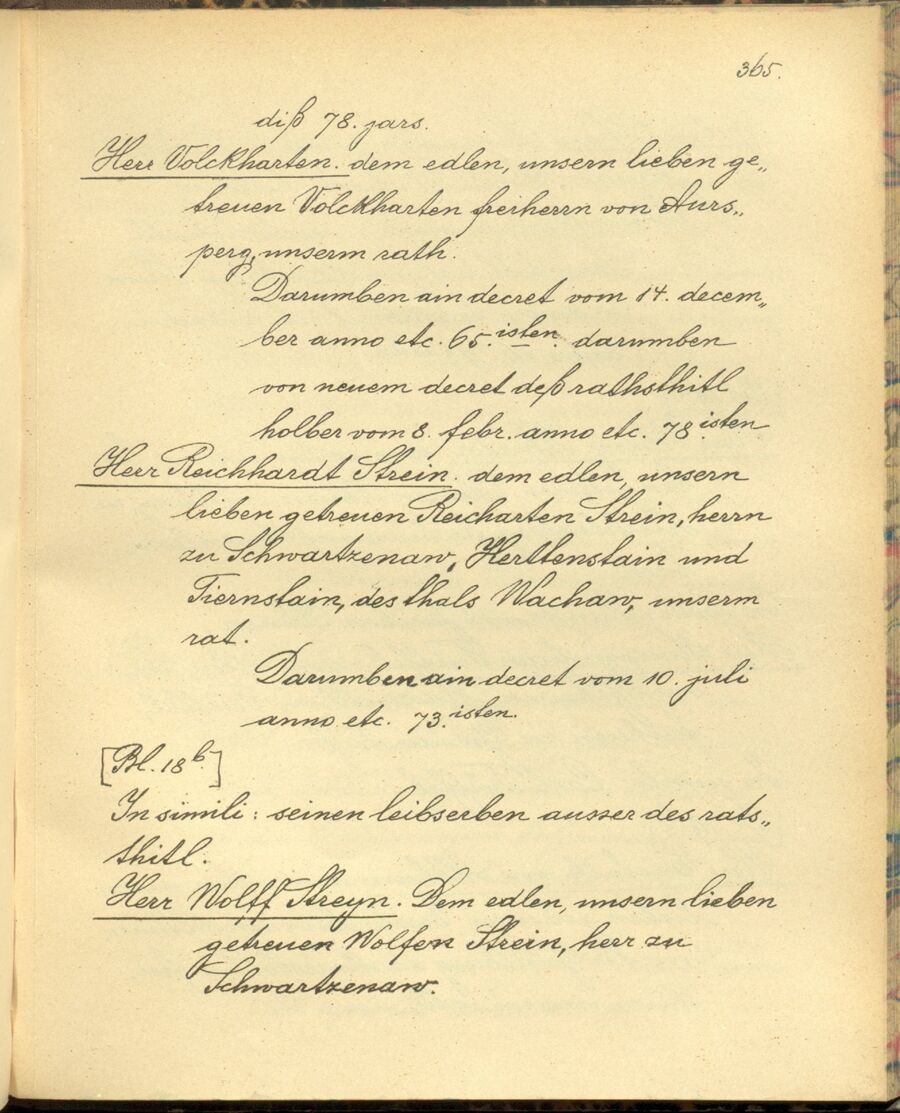 365.
diß 78. jars.
Herr Volckharten. dem edlen, unsern lieben ge„
treuen Volckharten freiherrn von Aurs„
perg, unserm rath.
Darumben ain decret vom 14. decem„
ber anno etc. 65.isten. darumben
von neuem decret deß rathsthitl
holber vom 8. febr. anno etc. 78.isten
Herr Reichhardt Strein. dem edlen, unsern
lieben getreuen Reicharten Strein, herrn
zu Schwartzenaw, Herttenstain und
Tiernstain, des thals Wachaw, unserm
rat.
Darumben ain decret vom 10. juli
anno etc. 73.isten.
[Bl. 18b.]
In simili: seinen leibserben ausser des rats„
thitl.
Herr Wolff Streyn. Dem edlen, unsern lieben
getreuen Wolfen Strein, herr zu
Schwartzenaw.